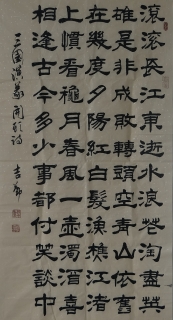 滾滾長江東逝水浪花淘盡英
雄是非成敗轉頭空青山依舊
在幾度夕陽紅白髮漁樵江渚
上慣看秋月春風一壺濁酒喜
相逢古今多少事都付笑談中
三國演義開篇詩